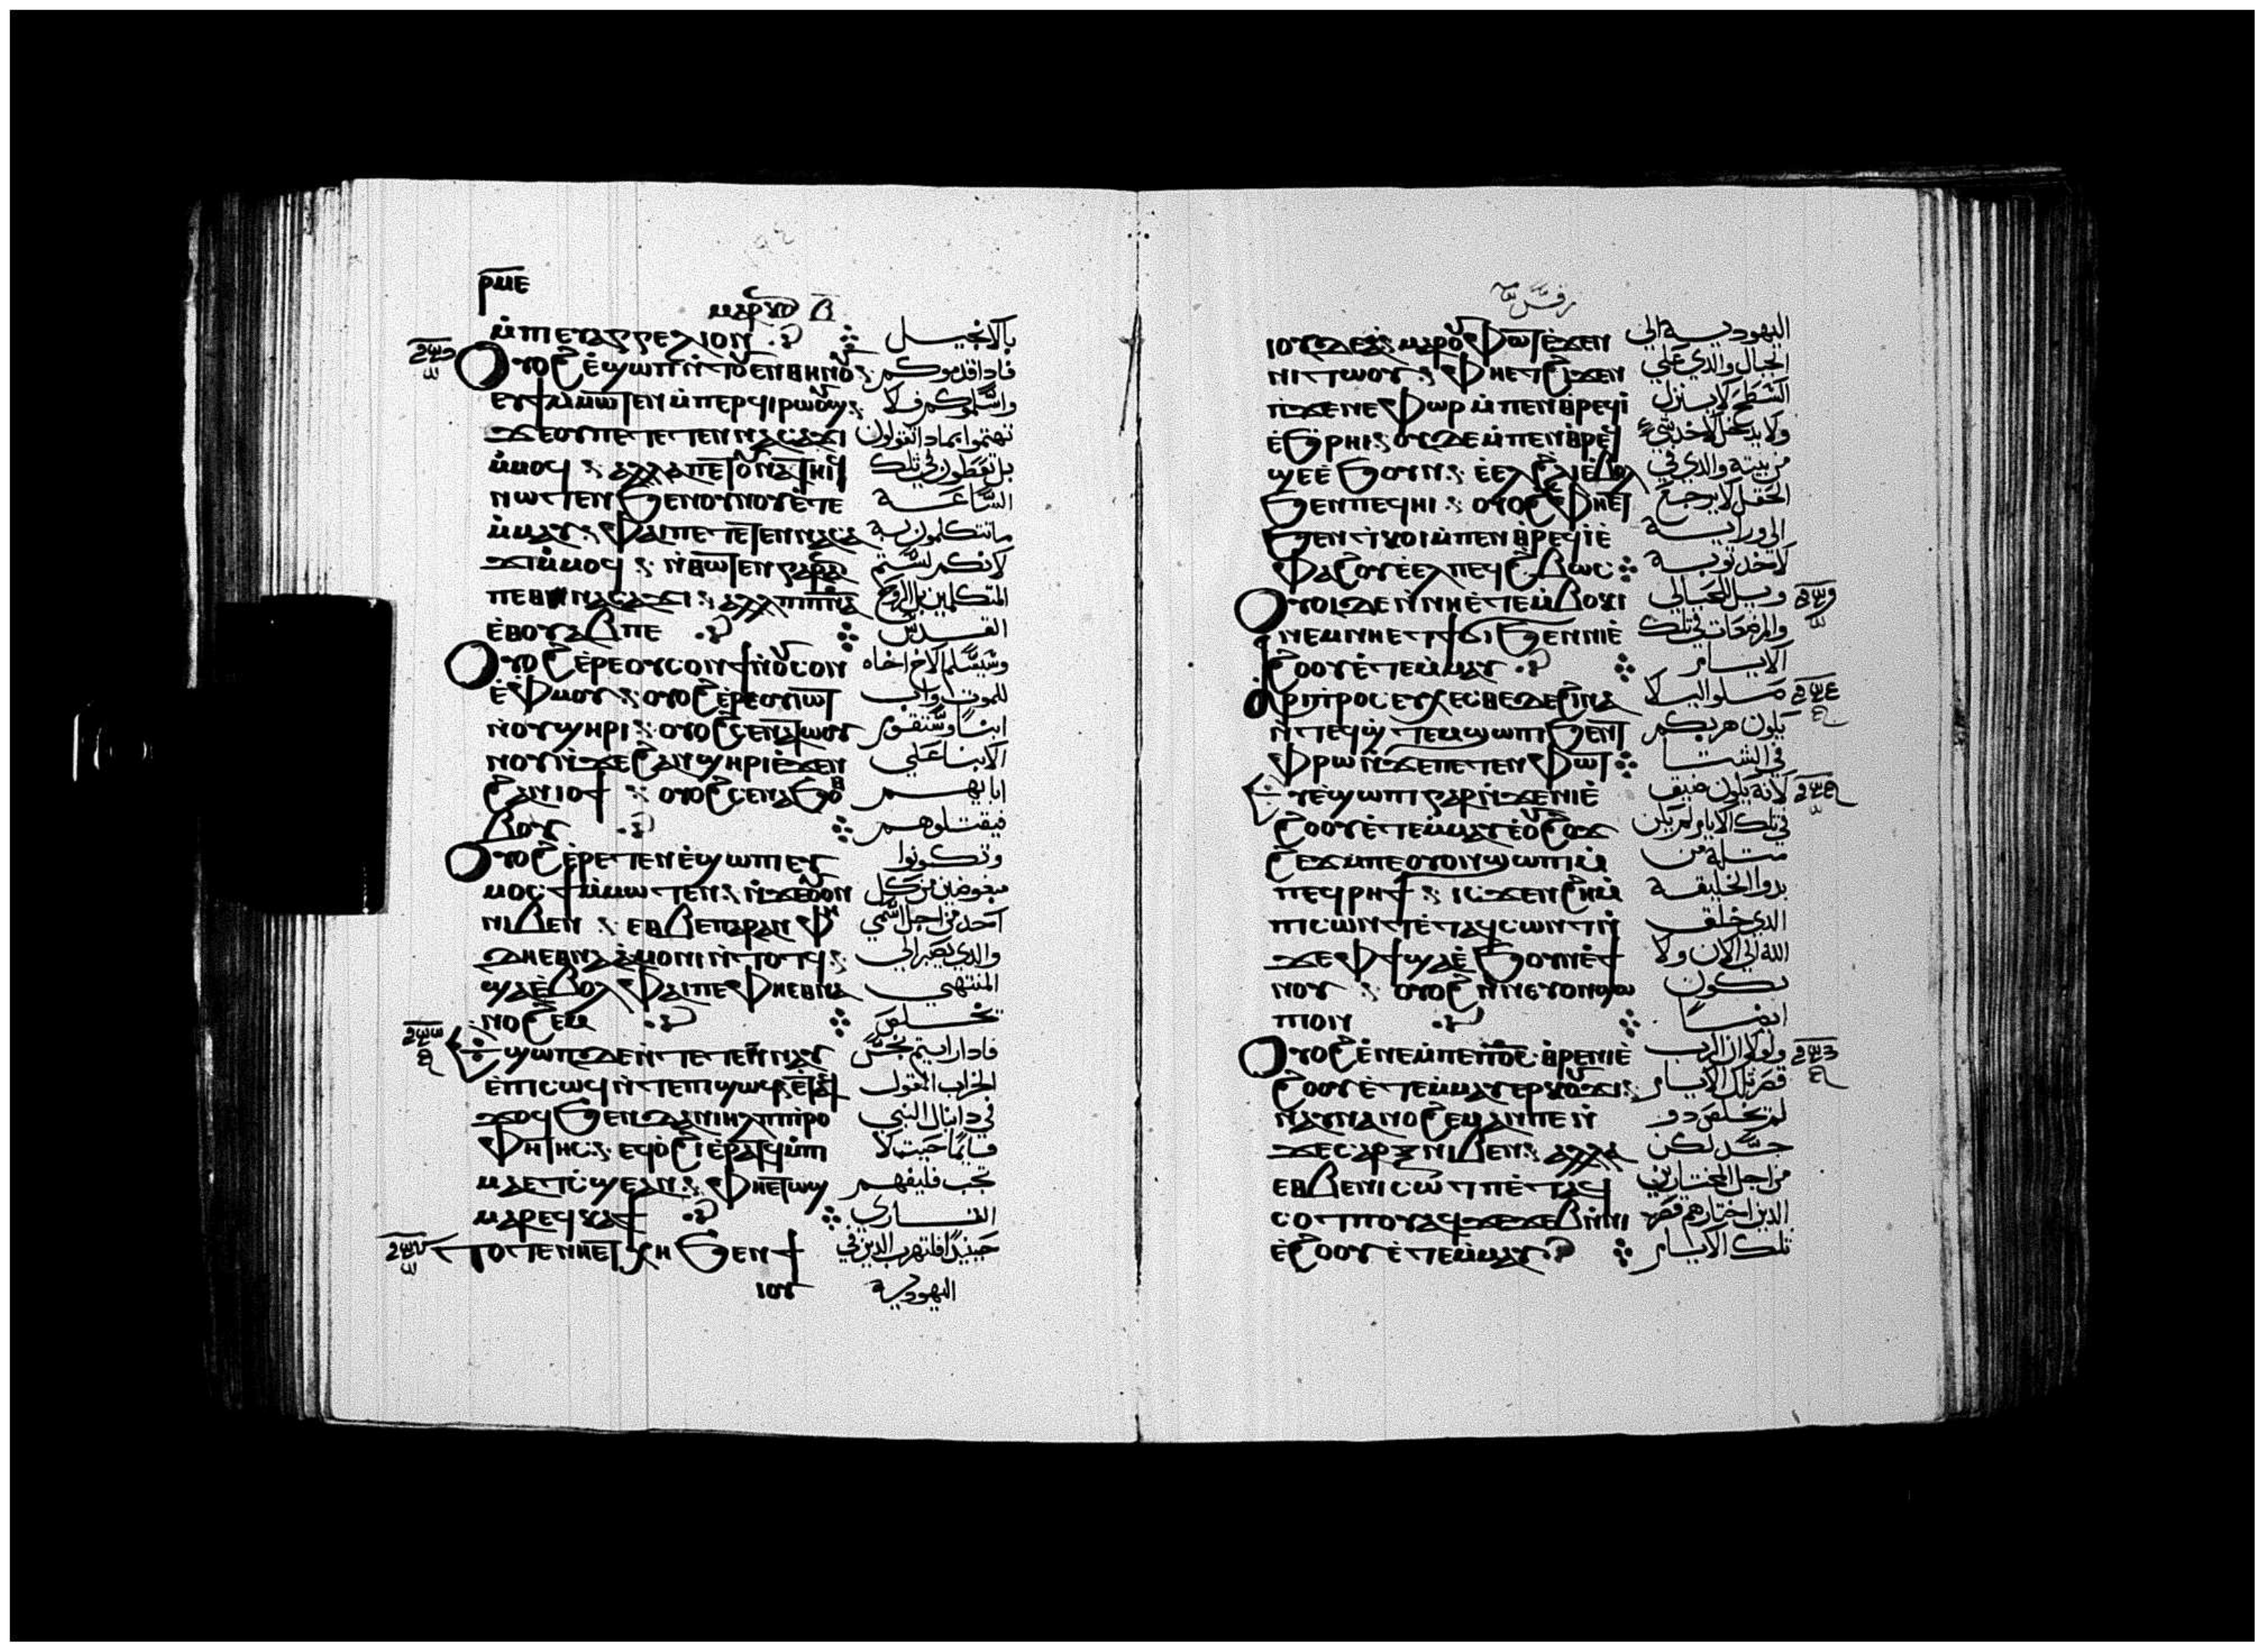 ⲣⲙⲉ
ⲙⲁⲣⲕⲟⲥ ⲃ̅
ⲙ̀ⲡⲉⲩⲁⲅⲅⲉⲗⲓⲟⲛ بالانجيل
Ⲟⲩⲟϩ ⲉ̀ϣⲱⲡ ⲛ̀ⲧⲟⲩⲉⲛⲑⲏⲛⲟⲩ فاذا قدموكم
ⲉⲩϯ ⲙ̀ⲙⲱⲧⲉⲛ ⲙ̀ⲡⲉⲣϥⲓⲣⲱⲟⲩϣ واسلموكم فلا
ϫⲉ ⲟⲩ ⲡⲉⲧⲉⲧⲉⲛⲛⲁⲥⲁϫⲓ تهتموا بماذا تقولون
ⲙ̀ⲙⲟϥ ⲁⲗⲗⲁ ⲡⲉⲧⲟⲩⲛⲁⲧⲏⲓϥ بل تعطون في تلك
ⲛⲱⲧⲉⲛ ϧⲉⲛ ⲟⲩⲛⲟⲩ ⲉ̀ⲧⲉ الساعة
ⲙ̀ⲙⲁⲩ ⲫⲁⲓ ⲡⲉⲧⲉⲧⲉⲛⲛⲁⲥⲁ ما تتكلمون به
ϫⲓ ⲙ̀ⲙⲟϥ ⲛ̀ⲑⲱⲧⲉⲛ ⲅⲁⲣ ⲁⲛ لانكم لستم
ⲡⲉⲑⲛⲁⲥⲁϫⲓ ⲁⲗⲗⲁ ⲡⲓⲡ̅ⲛ̅ⲁ̅ المتكلمين بل الروح
ⲉⲑⲟⲩⲁⲃ ⲡⲉ القدس
Ⲟⲩⲟϩ ⲉ̀ⲣⲉ ⲟⲩⲥⲟⲛ ϯ ⲛ̀ⲟⲩⲥⲟⲛ وسيسلم الاخ اخاه
ⲉ̀ⲫⲙⲟⲩ ⲟⲩⲟϩ ⲉ̀ⲣⲉ ⲟⲩⲓⲱⲧ للموت واب
ⲛⲟⲩϣⲏⲣⲓ ⲟⲩⲟϩ ⲥⲉⲛⲁⲧⲱⲟⲩ ابنا وستقوم
ⲛⲟⲩ ⲛ̀ϫⲉ ϩⲁⲛϣⲏⲣⲓ ⲉ̀ϫⲉⲛ الابنا علي
ϩⲁⲛⲓⲟϯ ⲟⲩⲟϩ ⲥⲉⲛⲁϧⲟⲑ ابايهم
ⲃⲟⲩ فيقتلوهم
Ⲟⲩⲟϩ ⲉ̀ⲣⲉⲧⲉⲛⲉ̀ϣⲱⲡⲓ ⲉⲩ وتكونوا
ⲙⲟⲥϯ ⲙ̀ⲙⲱⲧⲉⲛ ⲛ̀ϫⲉ ⲟⲩⲟⲛ مبغوضين من كل
ⲛⲓⲃⲉⲛ ⲉⲑⲃⲉ ⲡⲁⲣⲁⲛ ⲫⲏ احد من اجل اسمي
ⲇⲉ ⲉⲑⲛⲁⲁ̀ⲙⲟⲛⲓ ⲛ̀ⲧⲟⲧϥ والذي يصبر الي
ϣⲁ ⲉ̀ⲃⲟⲗ ⲫⲁⲓ ⲡⲉ ⲫⲏ ⲉⲑⲛⲁ المنتهي
ⲛⲟϩⲉⲙ يخلص
Ⲉϣⲱⲡ ⲇⲉ ⲛ̀ⲧⲉⲧⲉⲛⲛⲁⲩ فاذا رايتم نجس
ⲉ̀ⲡⲓⲥⲱϥ ⲛ̀ⲧⲉ ⲡⲓϣⲱϥ ⲉ̀ⲧⲁⲩ الخراب المقول
ϫⲟϥ ϧⲉⲛ ⲇⲁⲛⲓⲏⲗ ⲡⲓⲡⲣⲟ في دانيال النبي
ⲫⲏⲧⲏⲥ ⲉϥⲟ̀ϩⲓ ⲉ̀ⲣⲁⲧϥ ⲙ̀ⲡⲓ قايما حيث لا
ⲙⲁ ⲉⲧⲥϣⲉ ⲁⲛ ⲫⲏ ⲉⲧⲱϣ يجب فليفهم
ⲙⲁⲣⲉϥⲕⲁϯ القاري
ⲧⲟⲧⲉ ⲛⲏ ⲉⲧⲭⲏ ϧⲉⲛ ϯ حينيذ افليهرب الذين في
ⲓⲟⲩ اليهودية
ⲓⲟⲩⲇⲉⲁ̀ ⲙⲁⲣⲟⲩⲫⲱⲧ ⲉ̀ϫⲉⲛ اليهودية الي
ⲛⲓⲧⲱⲟⲩ ⲫⲏ ⲉⲧϩⲓϫⲉⲛ الجبال والذي علي
ⲡ̀ϫⲉⲛⲉⲫⲱⲣ ⲙ̀ⲡⲉⲛⲑⲣⲉϥⲓ السطح لا ينزل
ⲉ̀ϧⲣⲏⲓ ⲟⲩⲇⲉ ⲙ̀ⲡⲉⲛⲑⲣⲉϥ ولا يدخل لاخد شي
ϣⲉ ⲉ̀ϧⲟⲩⲛ ⲉ̀ⲉⲗ ϩⲗⲓ ⲉ̀ⲃⲟⲗ من بيته والدي في
ϧⲉⲛ ⲡⲉϥⲏⲓ ⲟⲩⲟϩ ⲫⲏ ⲉⲧ الحقل لا يرجع
ϧⲉⲛ ⲧⲕⲟⲓ ⲙ̀ⲡⲉⲛⲑⲣⲉϥⲓ ⲉ̀ الي ورايه
ⲫⲁϩⲟⲩ ⲉ̀ⲉⲗ ⲡⲉϥϩⲃⲱⲥ لاخد توبه
Ⲟⲩⲟⲓ ⲇⲉ ⲛ̀ⲛⲏ ⲉ̀ⲧⲉⲙⲃⲟⲕⲓ ويل للحبالي
ⲛⲉⲙ ⲛⲏ ⲉⲧϯϭⲓ ϧⲉⲛ ⲛⲓⲉ̀ والمرضعات في تلك
ϩⲟⲟⲩ ⲉ̀ⲧⲉⲙ̀ⲙⲁⲩ الايام
ⲁ̀ⲣⲓⲡⲣⲟⲥⲉⲩⲭⲉⲥⲑⲉ ⲇⲉ ϩⲓⲛⲁ صلوا ليلا
ⲛ̀ⲧⲉϥϣⲧⲉⲙϣⲱⲡⲓ ϧⲉⲛ ⲧ يكون هربكم
ⲫⲣⲱ ⲛ̀ϫⲉ ⲡⲉⲧⲉⲛⲫⲱⲧ في الشتا
Ⲉⲩⲉ̀ϣⲱⲡⲓ ⲅⲁⲣ ⲛ̀ϫⲉ ⲛⲓⲉ̀ لانه يكون ضيق
ϩⲟⲟⲩ ⲉ̀ⲧⲉⲙ̀ⲙⲁⲩ ⲉ̀ⲟⲩϩⲟϫ في تلك الايام لم يكن
ϩⲉϫ ⲙ̀ⲡⲉ ⲟⲩⲟⲛ ϣⲱⲡⲓ ⲙ̀ مثله من
ⲡⲉϥⲣⲏϯ ⲓⲥϫⲉⲛ ϩⲏ ⲙ̀ بدو الخليقة
ⲡⲓⲥⲱⲛⲧ ⲉ̀ⲧⲁϥⲥⲱⲛⲧ ⲛ̀ الذي خلق
ϫⲉ ⲫϯ ϣⲁ ⲉ̀ϧⲟⲩⲛ ⲉ̀ϯ الله الي الان ولا
ⲛⲟⲩ ⲟⲩⲟϩ ⲛ̀ⲛⲉⲩⲟⲛ ϣⲱ تكون
ⲡⲓ ⲟⲛ ايضا
Ⲟⲩⲟϩ ⲉ̀ⲛⲉ ⲙ̀ⲡⲉ ⲡ̅ⲟ̅ⲥ̅ ⲑⲣⲉ ⲛⲓⲉ̀ ولولا ان الرب
ϩⲟⲟⲩ ⲉ̀ⲧⲉⲙ̀ⲙⲁⲩ ⲉⲣⲕⲟⲩϫⲓ قصر تلك الايام
ⲛⲁⲩⲛⲁⲛⲟϩⲉⲙ ⲁⲛ ⲡⲉ ⲛ̀ لم يخلص دو
ϫⲉ ⲥⲁⲣⲝ ⲛⲓⲃⲉⲛ ⲁⲗⲗⲁ جسد لكن
ⲉⲑⲃⲉ ⲛⲓⲥⲱⲧⲡ ⲉ̀ⲧⲁϥ من اجل المختارين
ⲥⲟⲧⲡⲟⲩ ⲁϥϫⲉϫⲉⲃ ⲛⲓ الذين اختارهم قصر
ⲉ̀ϩⲟⲟⲩ ⲉ̀ⲧⲉⲙ̀ⲙⲁⲩ تلك الايام